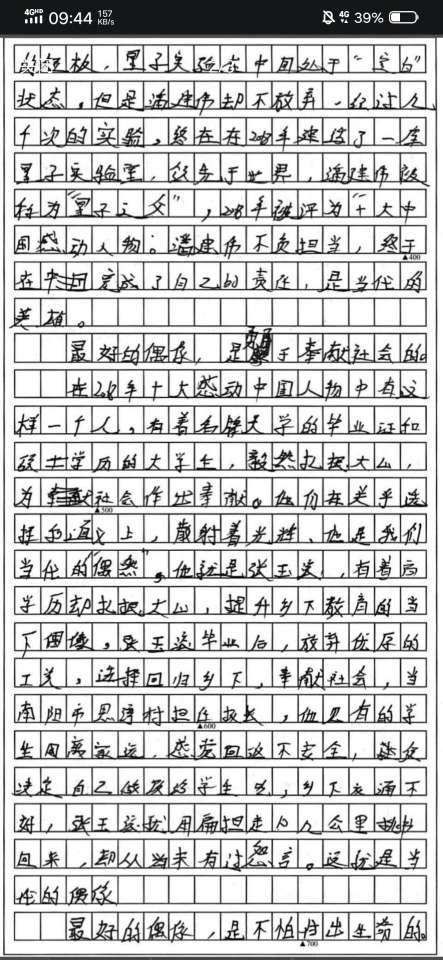 09:44 157 KB/s 4G 39%
的短板，量子实验在中国处于“空白”
状态，但是潘建伟却不放弃，经过几
千次的实验，终在在2018年建造了一座
量子实验室，领先于世界，潘建伟被
称为“量子之父”，2018年被评为“十大中
国感动人物”。潘建伟不负担当，终于
▲400
在完成了自己的责任，是当代的
英雄。
最好的偶像，是勇于奉献社会的。
在2018年十大感动中国人物中有这
样一个人，有着名牌大学的毕业证和
硕士学历的大学生，毅然扎根大山，
为社会作出奉献。他们在关乎选
▲500
择的道义上，散射着光辉，也是我们
当代的“偶像”。他就是张玉滚，有着高
学历却扎根大山，提升乡下教育的当
下偶像，张玉滚毕业后，放弃优厚的
工资，选择回归乡下，奉献社会，当
南阳市思源村担任校长，他见有的学
▲600
生因离家远，感觉回返不安全，就
决定自己做饭给学生吃，乡下交通不
好，张玉滚就用扁担走几公里挑书
回来，却从当未有过怨言。这就是当
代的偶像
最好的偶像，是不怕付出生劳的。
▲700